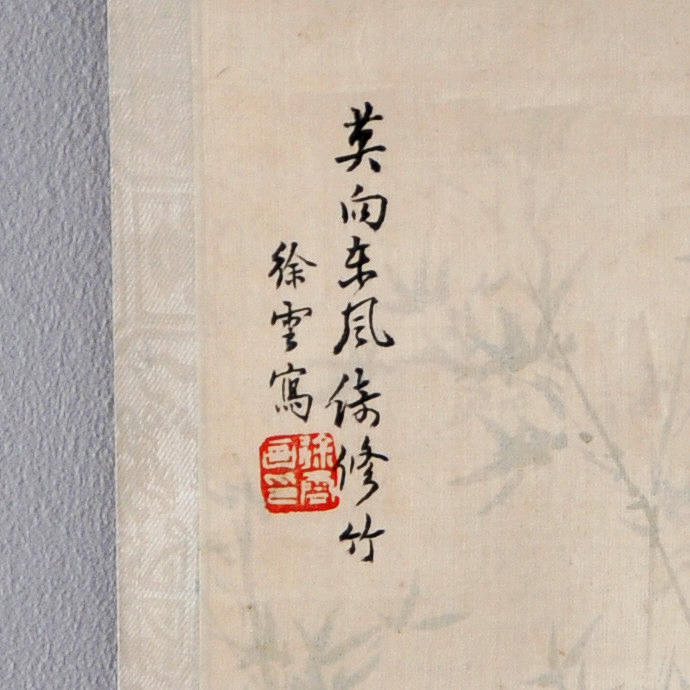 莫向东风倚修竹
徐雲寫
徐雲画印